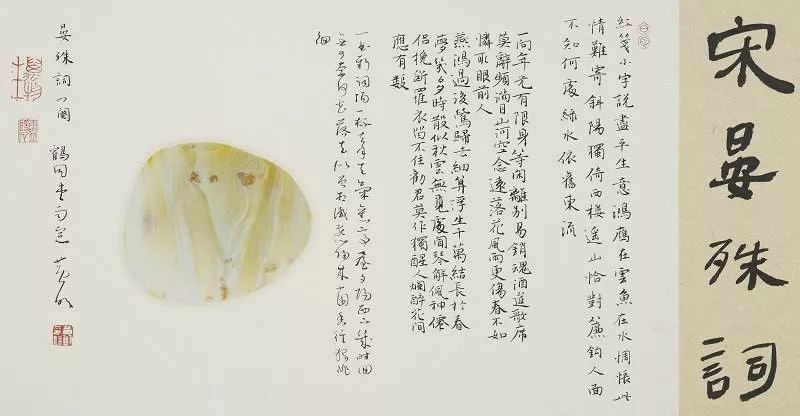 宋晏殊詞
紅箋小字說盡平生意鴻鴈在雲魚在水惆悵此
情難寄斜陽獨倚西樓遙山恰對簾鈎人面
不知何處綠水依舊東流
一向年光有限身等閑離別易銷魂酒筵歌席
莫辭頻滿目山河空念遠落花風雨更傷春不如
憐取眼前人
燕鴻過後鶯歸去細算浮生千萬緒長於春
夢幾多時散似秋雲無覓處聞琴解佩神僊
侶挽斷羅衣留不住勸君莫作獨醒人爛醉花間
應有數
一曲新詞酒一杯去年天氣舊亭臺夕陽西下幾時回
無可奈何花落去似曾相識燕歸來小園香徑獨徘
徊
晏殊詞四闋